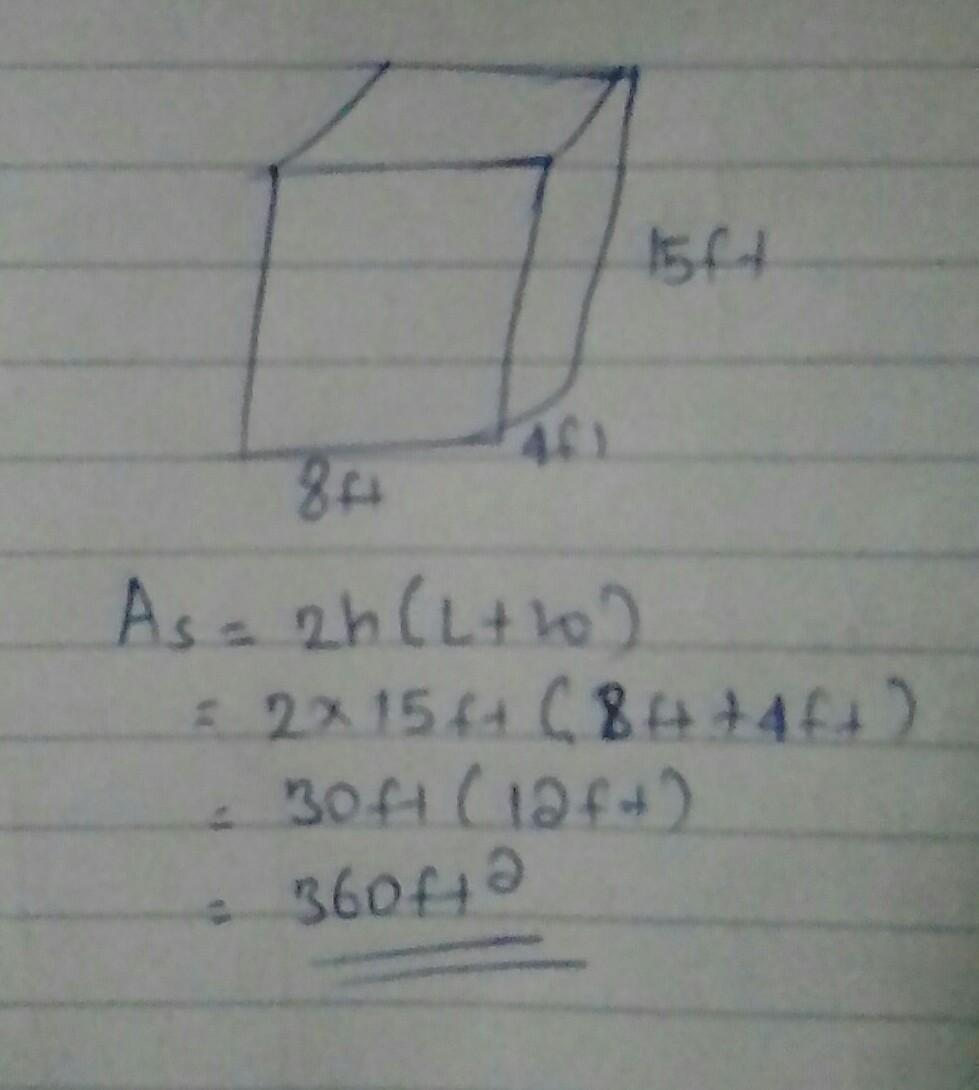 15ft
4ft
8ft
As = 2h(L+w)
= 2×15ft (8ft+4ft)
= 30ft (12ft)
= 360ft²